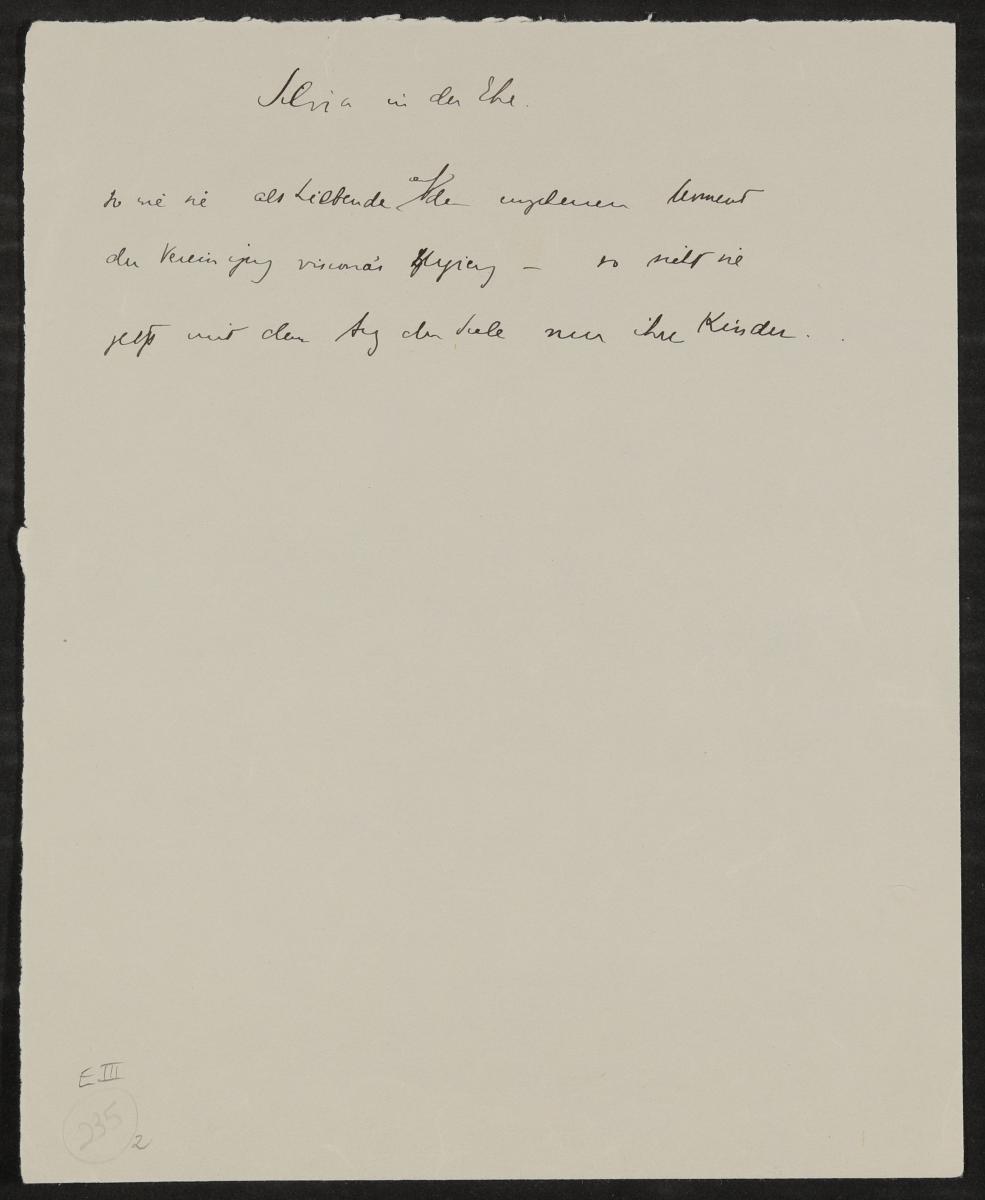 Silvia in der Ehe.
so wie sie als Liebende den ungeheuren Moment
der Vereinigung visionär – so sieht sie
jetzt mit dem Aug der Seele nur ihre Kinder..
E III
235
2